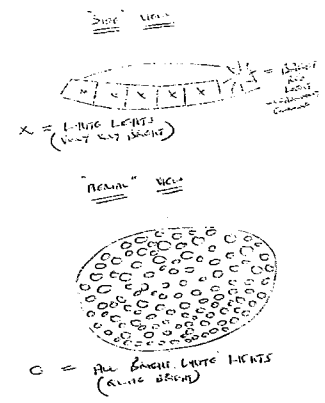 "SIDE" VIEW
= BRIGHT
RED
LIGHT
X X X X X
X = WHITE LIGHTS
(VERY VERY BRIGHT)
"AERIAL" VIEW
O = ALL BRIGHT WHITE LIGHTS
BRIGHT)